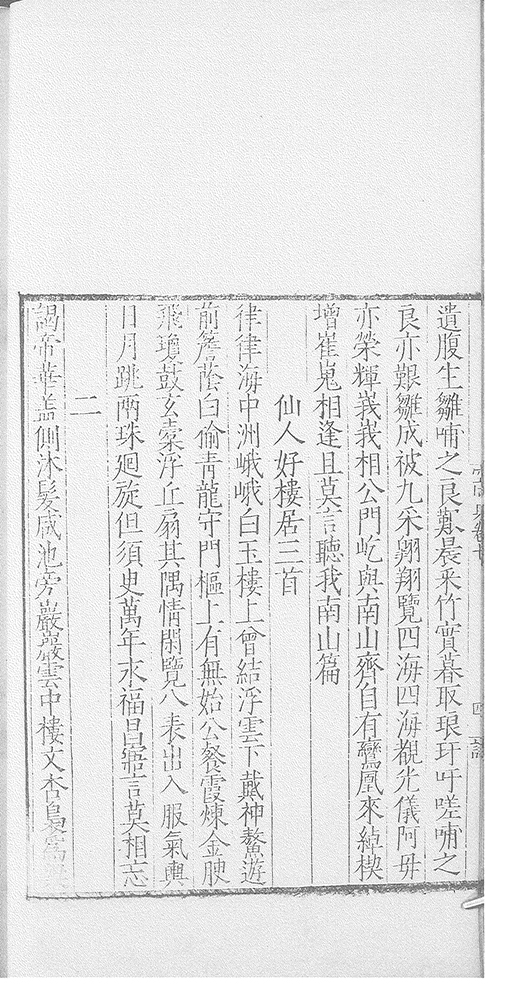 遺腹生雛哺之良艱晨采竹實暮取琅玕吁嗟哺之
良亦艱雛成被九采翱翔覽四海四海覩光儀阿毋
亦榮輝峩峩相公門屹與南山齊自有鸞凰來綽楔
增崔嵬相逢且莫言聽我南山篇
仙人好樓居三首
律律海中洲峨峨白玉樓上曾結浮雲下戴神鰲遊
前簷蔭白俞青龍守門樞上有無始公餐霞煉金腴
飛瓊鼓玄橐浮丘扇其隅情閑覽八表出入服氣輿
日月跳兩珠廻旋但須臾萬年永福昌寤言莫相忘
二
謁帝華盖側沐髮咸池旁巖巖雲中樓文杏